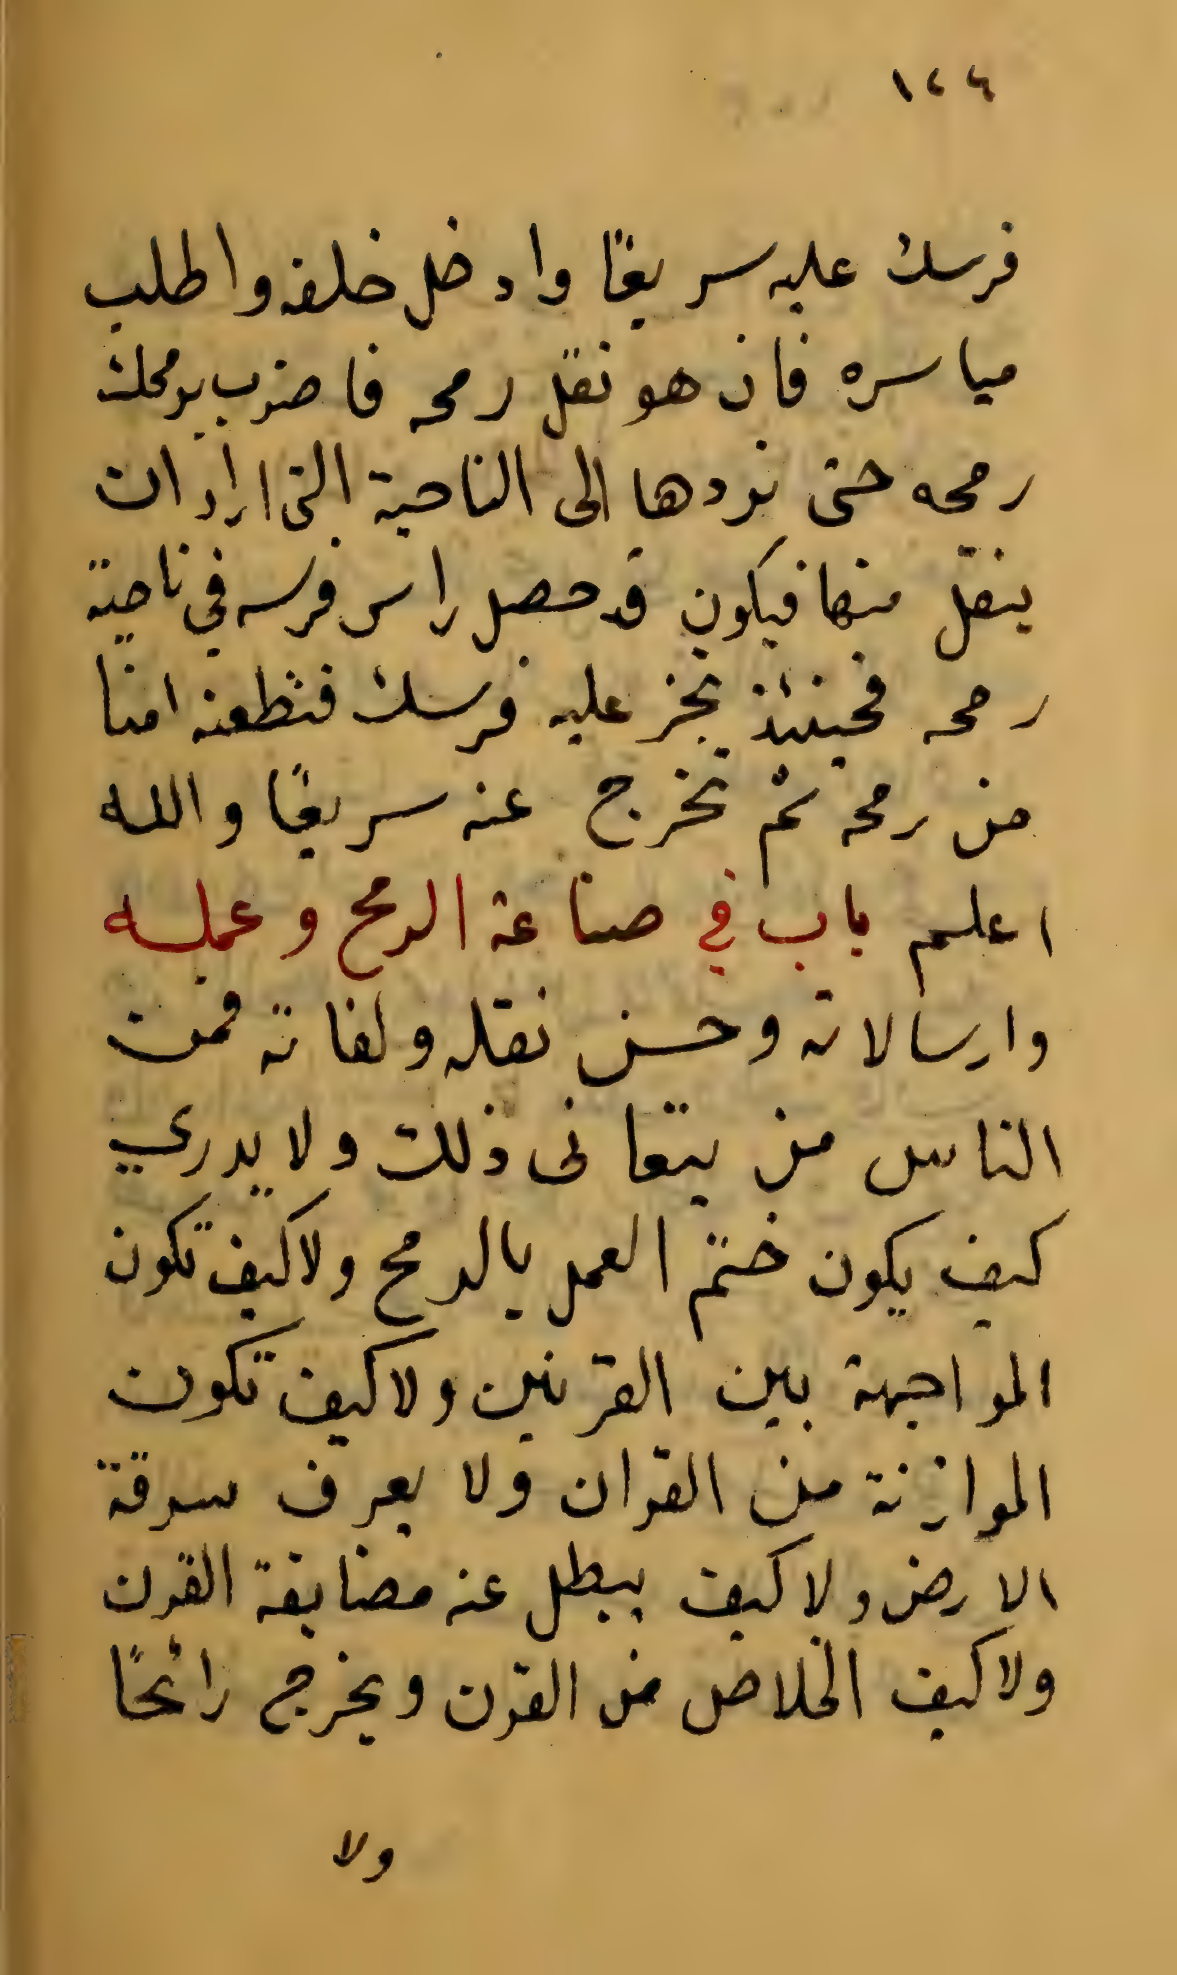 ١٤٦
فرسك عليه سريعًا وادخل خلفه واطلب
مياسره فان هو نقل رمحه فاضرب برمحك
رمحه حتى تردها الى الناحية التى اراد ان
ينقل منها فيكون قد حصل راس فرسه في ناحية
رمحه فحينئذ تجز عليه فرسك فتطعنه امنا
من رمحه ثم تخرج عنه سريعًا والله
اعلم باب في صناعة الرمح وعمله
وارسالاته وحسن نقله ولفاته فمن
الناس من يتعانى ذلك ولا يدري
كيف يكون ختم العمل بالرمح ولا كيف تكون
المواجهة بين القرنين ولا كيف تكون
الموازنة من القران ولا يعرف سرقة
الارض ولا كيف يبطل عنه مضايقة القرن
ولا كيف الخلاص من القرن ويخرج رائحًا
ولا